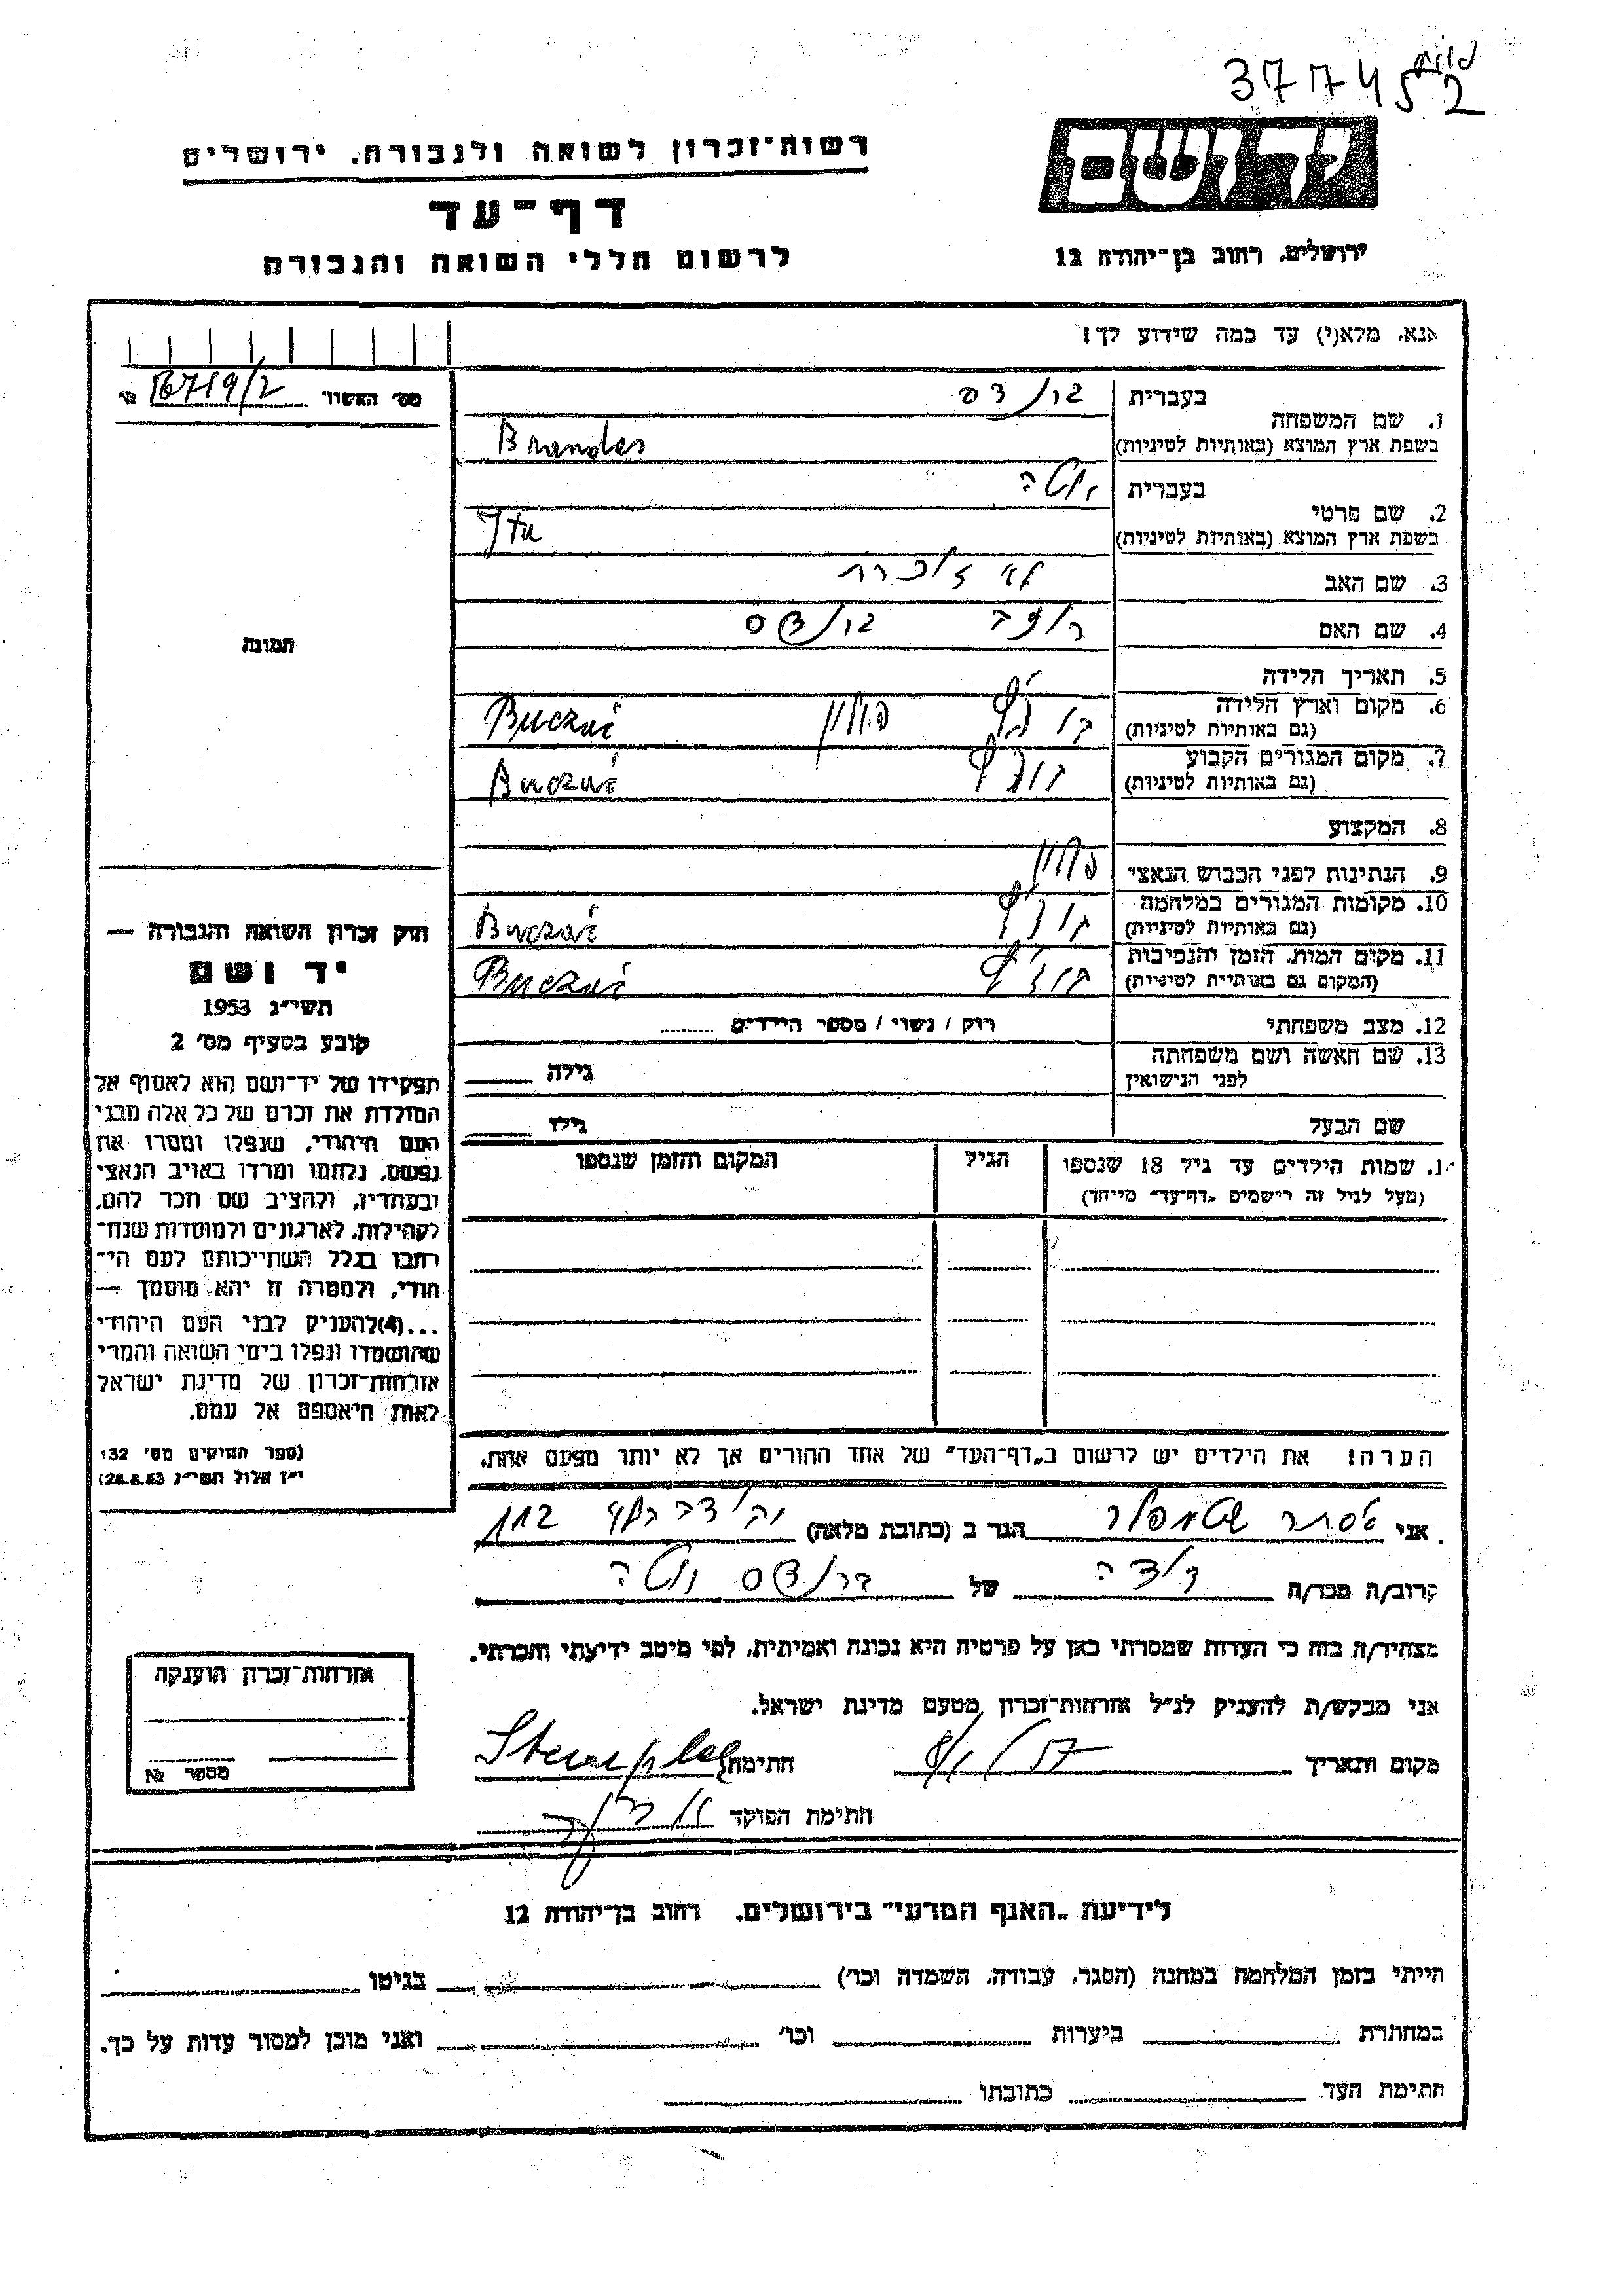 377452
רשות־זכרון לשואה ולגבורה, ירושלים
יד ושם
דף־עד
לרשום חללי השואה והגבורה
ירושלים, רחוב בן־יהודה 12
אנא, מלא(י) עד כמה שידוע לך!
מס' האשור
16719/2
1. שם המשפחה בעברית
ברנדס
בשפת ארץ המוצא (באותיות לטיניות)
Brandes
2. שם פרטי בעברית
יוטה
בשפת ארץ המוצא (באותיות לטיניות)
Jta
3. שם האב לא זוכרת
4. שם האם ברנדס
תמונה
5. תאריך הלידה
6. מקום וארץ הלידה
(גם באותיות לטיניות) פולין Buczač
7. מקום המגורים הקבוע
(גם באותיות לטיניות) Buczač
8. המקצוע
9. הנתינות לפני הכבוש הנאצי פולין
10. מקומות המגורים במלחמה
(גם באותיות לטיניות) Buczač
11. מקום המות, הזמן והנסיבות
(המקום גם באותיות לטיניות) Buczač
12. מצב משפחתי רוק / נשוי / מספר הילדים
13. שם האשה ושם משפחתה
לפני הנישואין גילה
שם הבעל גילו
שמות הילדים עד גיל 18 שנספו הגיל המקום והזמן שנספו
(מעל לגיל זה רישמים „דף־עד” מייחד)
הערה! את הילדים יש לרשום ב„דף־העד” של אחד ההורים אך לא יותר מפעם אחת.
חוק זכרון השואה והגבורה —
יד ושם
תשי״ג 1953
קובע בסעיף מס' 2
תפקידו של יד־ושם הוא לאסוף אל
המולדת את זכרם של כל אלה מבני
העם היהודי, שנפלו ומסרו את
נפשם, נלחמו ומרדו באויב הנאצי
ובעוזריו, ולהציב שם וזכר להם,
לקהילות, לארגונים ולמוסדות שנח־
רבו בגלל השתייכותם לעם הי־
הודי, ולמטרה זו יהא מוסמך —
...(4) להעניק לבני העם היהודי
שהושמדו ונפלו בימי השואה והמרי
אזרחות־זכרון של מדינת ישראל
לאות היאספם אל עמם.
(ספר החוקים מס' 132
י״ז אלול תשי״ג 28.8.53)
אני אסתר שטמפלר הגר ב (כתובת מלאה) 112
קרוב/ה מכר/ה דודה של ברנדס יוטה
מצהיר/ה בזה כי העדות שמסרתי כאן על פרטיה היא נכונה ואמיתית, לפי מיטב ידיעתי והכרתי.
אני מבקש/ת להעניק לנ״ל אזרחות־זכרון מטעם מדינת ישראל.
מקום ותאריך 8/1/57 חתימה Stempler
חתימת הפוקד
אזרחות־זכרון הוענקה
מספר №
לידיעת „האגף המדעי” בירושלים, רחוב בן־יהודה 12
הייתי בזמן המלחמה במחנה (הסגר, עבודה, השמדה וכו') בגיטו
במחתרת ביערות וכו' ואני מוכן למסור עדות על כך.
חתימת העד כתובתו